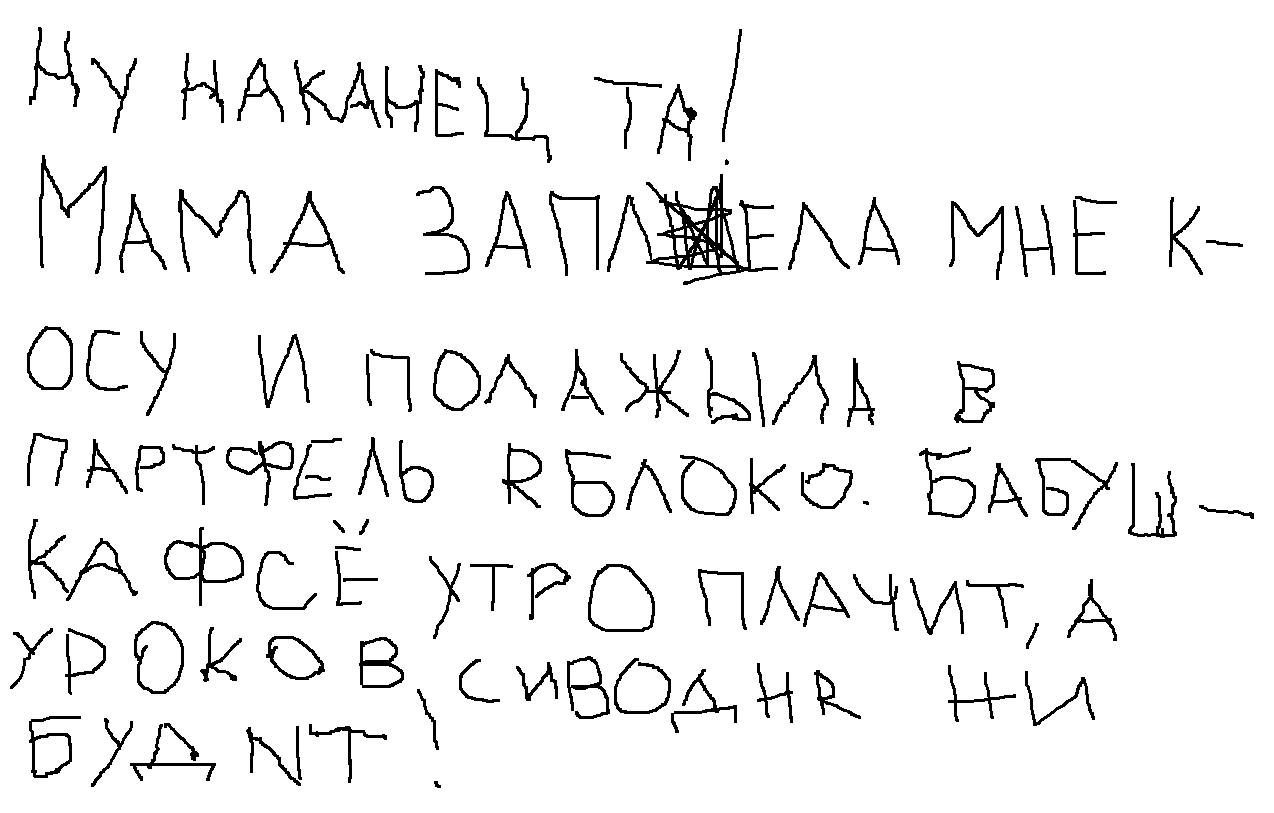 Ну НАКАНЕЦ ТА!
МАМА ЗАПЛЕЛА МНЕ К-
ОСУ И ПОЛАЖЫЛА В
ПАРТФЕЛЬ RБЛОКО. БАБУШ-
КА ФСЁ УТРО ПЛАЧИТ, А
УРОКОВ СИВОДНR НИ
БУДNТ!